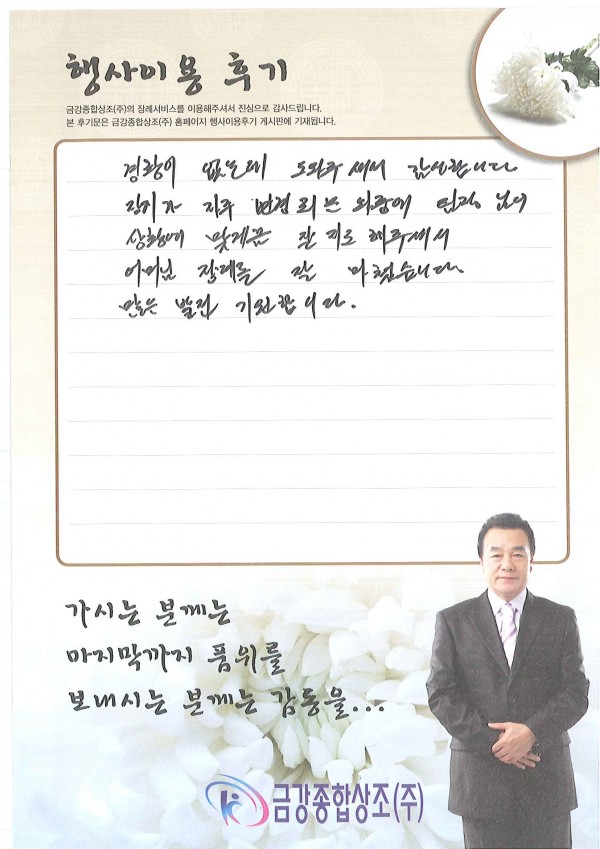 행사이용 후기
금강종합상조(주)의 장례서비스를 이용해주셔서 진심으로 감사드립니다.
본 후기문은 금강종합상조(주) 홈페이지 행사이용후기 게시판에 기재됩니다.
경황이 없는데 도와주셔서 감사합니다.
장지가 자주 변경되는 와중에
상황에 맞게끔 잘 지도해주셔서
어머님 장례를 잘 마쳤습니다.
많은 발전 기원합니다.
가시는 분께는
마지막까지 품위를
보내시는 분께는 감동을...
금강종합상조(주)